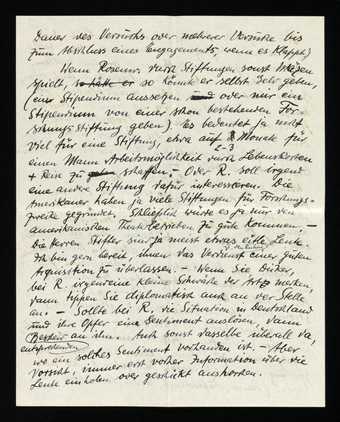 Dauer des Versuchs oder mehrerer Versuche bis
zum Abschluss eines Engagements, wenn es klappt.)
Wenn Rosenw. durch Stiftungen sonst Mäzen
spielt, so hätte er so könnte er selbst Geld geben,
(ein Stipendium aussetzen und oder nur ein
Stipendium von einer schon bestehenden For-
schungs Stiftung geben). Es bedeutet ja nicht
viel für eine Stiftung, etwa auf 2-3 Monate für
einen Mann Arbeitsmöglichkeit durch Lebenskosten
+ Reise zu geben schaffen. – Oder R. soll irgend
eine andre Stiftung dafür interessieren. Die
Amerikaner haben ja viele Stiftungen für Forschungs-
zwecke gegründet. Schließlich würde es ja nur den
amerikanischen Theaterbetrieben zu gute kommen. –
Die Herren Stifter sind ja meist etwas eitle Leute.
Ich bin gern bereit, ihnen das Verdienst einer guten
Acquisition zu überlassen. – Wenn Sie, Düker,
bei R. irgendeine kleine Schwäche der Art merken,
dann tippen Sie diplomatisch auch an der Stelle
an. – Sollte bei R. die Situation in Deutschland
und ihre Opfer eine Sentiment auslösen, dann
an ihn. Auch sonst dasselbe überall da,
wo ein solches entsprechendes Sentiment vorhanden ist. – Aber
Vorsicht, immer erst vorher Information über die
Leute einholen oder geschickt aushorchen.